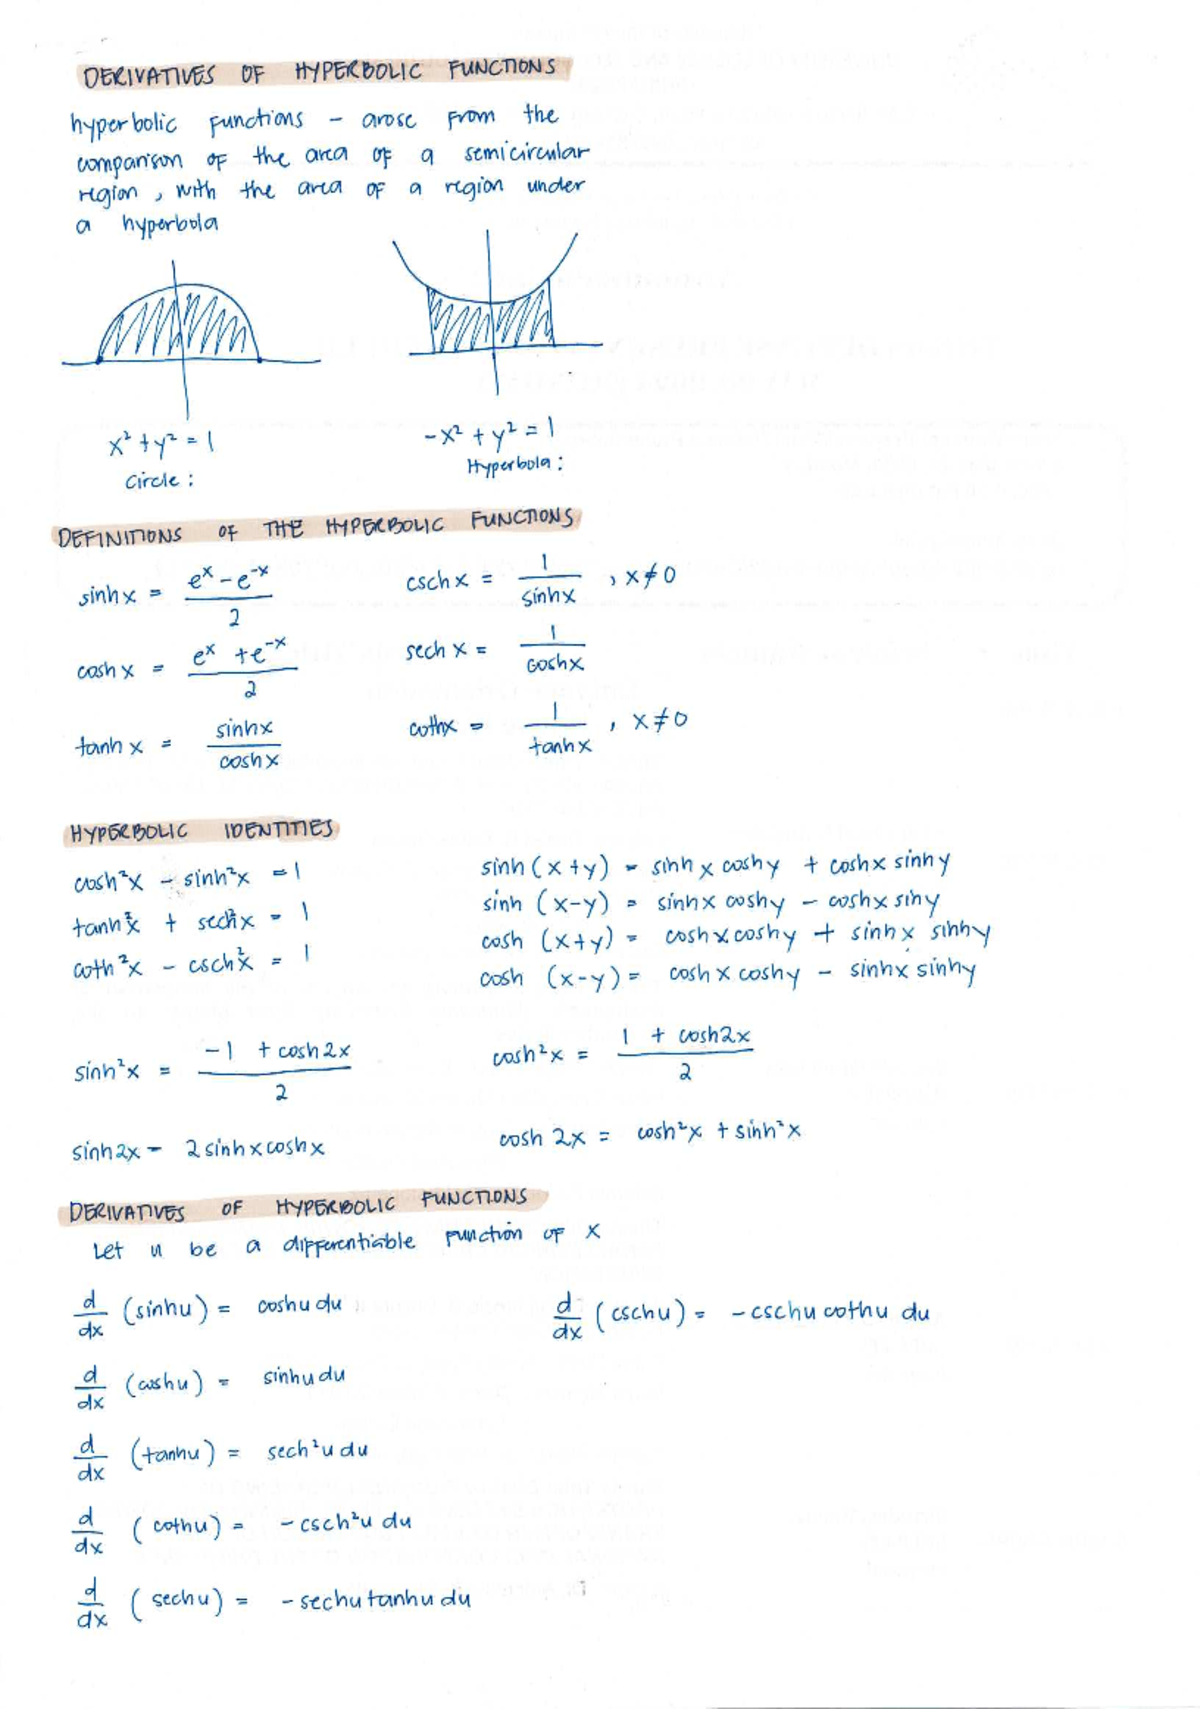 DERIVATIVES OF HYPERBOLIC FUNCTIONS
hyperbolic functions - arose from the
comparison of the area of a semicircular
region, with the area of a region under
a hyperbola
x² + y² = 1
Circle:
-x² + y² = 1
Hyperbola:
DEFINITIONS OF THE HYPERBOLIC FUNCTIONS
sinh x = (e^x - e^-x)/2
csch x = 1/sinhx , x ≠ 0
cosh x = (e^x + e^-x)/2
sech x = 1/coshx
tanh x = sinhx/coshx
cothx = 1/tanhx , x ≠ 0
HYPERBOLIC IDENTITIES
cosh²x - sinh²x = 1
tanh²x + sech²x = 1
coth²x - csch²x = 1
sinh (x+y) = sinh x coshy + coshx sinhy
sinh (x-y) = sinhx coshy - coshx sinhy
cosh (x+y) = coshxcoshy + sinhx sinhy
cosh (x-y) = coshx coshy - sinhx sinhy
sinh²x = (-1 + cosh2x)/2
cosh²x = (1 + cosh2x)/2
sinh2x = 2sinhxcoshx
cosh 2x = cosh²x + sinh²x
DERIVATIVES OF HYPERBOLIC FUNCTIONS
Let u be a differentiable function of x
d/dx (sinhu) = coshu du
d/dx (cschu) = -cschu cothu du
d/dx (coshu) = sinhu du
d/dx (tanhu) = sech²u du
d/dx (cothu) = -csch²u du
d/dx (sechu) = -sechu tanhu du